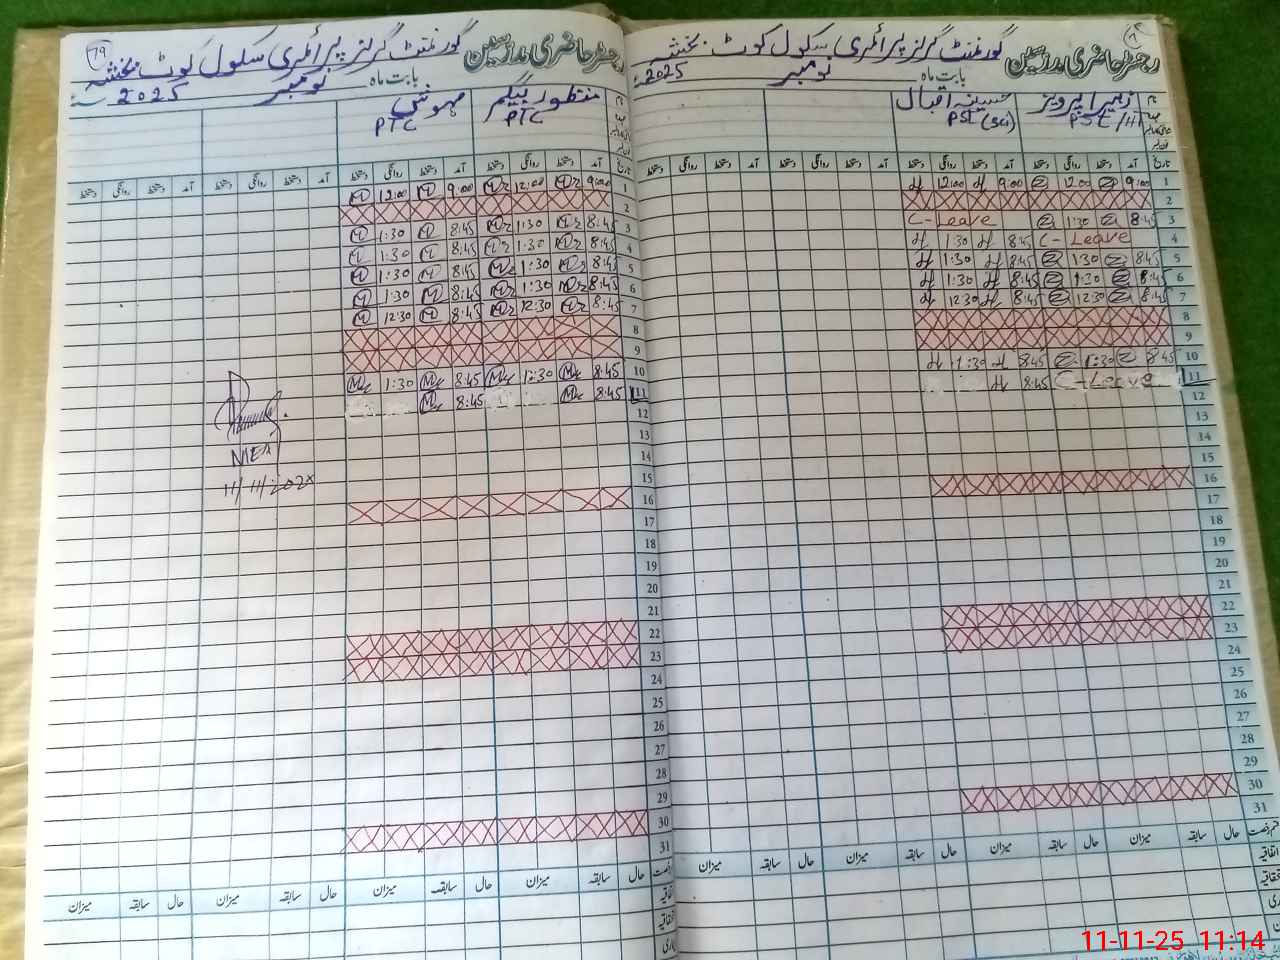 رجسٹر حاضری مدرسین گورنمنٹ گرلز پرائمری سکول کوٹ بخشہ
بابت ماہ نومبر 2025
زہیرا پرویز حسینہ اقبال
PST/H PST (sci)
تاریخ آمد دستخط روانگی دستخط آمد دستخط روانگی دستخط آمد دستخط روانگی دستخط آمد دستخط روانگی دستخط
1 9:00 12:00 9:00 12:00
2
3 8:45 1:30 C-Leave
4 C-Leave 8:45 1:30
5 8:45 1:30 8:45 1:30
6 8:45 1:30 8:45 1:30
7 8:45 12:30 8:45 12:30
8
9
10 8:45 1:30 8:45 1:30
11 C-Leave 8:45
12
13
14
15
16
17
18
19
20
21
22
23
24
25
26
27
28
29
30
31
حال سابقہ میزان حال سابقہ میزان حال سابقہ میزان حال سابقہ میزان
اتفاقیہ
79
رجسٹر حاضری مدرسین گورنمنٹ گرلز پرائمری سکول کوٹ بخشہ
بابت ماہ نومبر 2025
منظور بیگم مہوش
PTC PTC
آمد دستخط روانگی دستخط آمد دستخط روانگی دستخط آمد دستخط روانگی دستخط آمد دستخط روانگی دستخط
1 9:00 12:00 9:00 12:00
2
3 8:45 1:30 8:45 1:30
4 8:45 1:30 8:45 1:30
5 8:45 1:30 8:45 1:30
6 8:45 1:30 8:45 1:30
7 8:45 12:30 8:45 12:30
8
9
10 8:45 1:30 8:45 1:30
11 8:45 8:45
12
13
14
15
16
17
18
19
20
21
22
23
24
25
26
27
28
29
30
31
MEA
11/11/202
حال سابقہ میزان حال سابقہ میزان حال سابقہ میزان حال سابقہ میزان
11-11-25 11:14